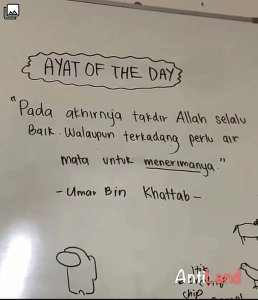 AYAT OF THE DAY
"Pada akhirnya takdir Allah selalu
Baik. Walaupun terkadang perlu air
mata untuk menerimanya."
- Umar Bin Khattab -
chip
AntiLand